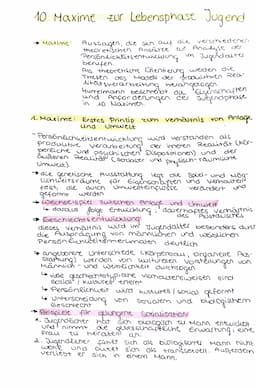 10 Maxime zur Lebensphase Jugend
→ Maxime: Aussagen, die sich auf die verschiedenen
theoretischen Ansätze zur Analyse der
Persönlichkeitsentwicklung im Jugendalter
berufen.
→ Als theoretische Orientierung werden die
Thesen des Modells der produktiven Rea-
litätsverarbeitung herangezogen
→ Hurrelmann beschreibt die Eigenschaften
und Anforderungen der Jugendphase
in 10 Maximen
1. Maxime: Erstes Prinzip zum Verhältnis von Anlage
und Umwelt
- Persönlichkeitsentwicklung wird verstanden als
produktive Verarbeitung der inneren Realität (kör-
perliche und psychischen Dispositionen) und der
äußeren Realität (sozialer und physisch-räumliche
Umwelt)
→ die genetische Ausstattung legt die Spiel- und
für Eigenschaften und Verhalten
fest, die durch Umwelteinflüsse verändert und
geformt werden
→ Wechselspiel zwischen Anlage und Umwelt
→ daraus folgt Entwicklung, dauerhaftes Verhältnis
des Austauschs
→ Geschlechtsentwicklung
dieses Verhältnis wird im Jugendalter besonders durch
die Ausprägung von männlichen und weiblichen
Persönlichkeitsmerkmalen deutlich
→ angeborene Unterschiede (Körperbau, Organe,
) werden von kulturellen Vorstellungen von
Männlich- und Weiblichkeit durchzogen
→ geschlechtsspezifische Verhaltensweisen sind
sozial / kulturell erlernt
→ Persönlichkeit wird kulturell / sozial geformt
→ Unterscheidung von sozialem und biologischem
Geschlecht
→ Beispiele für gelungene Sozialisation
1. Jugendlicher hat sich biologisch zu Mann entwickelt
und nimmt die gesellschaftliche Erwartung, eine
Frau zu heiraten an
2. Jugendlicher fühlt sich als biologischer Mann nicht
wohl und outet sich als transsexuell. Außerdem
verliebt er sich in einem Mann.